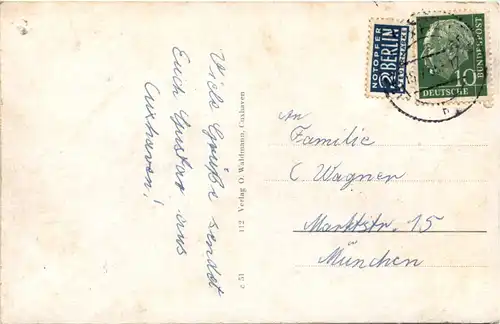 Viele Grüße sendet
Euch Gustav aus
Cuxhaven!
c 51   117 Verlag O. Waldmann, Cuxhaven
NOTOPFER
2 BERLIN
STEUERMARKE
10
DEUTSCHE
BUNDESPOST
An
Familie
C. Wagner
Marktstr. 15
München